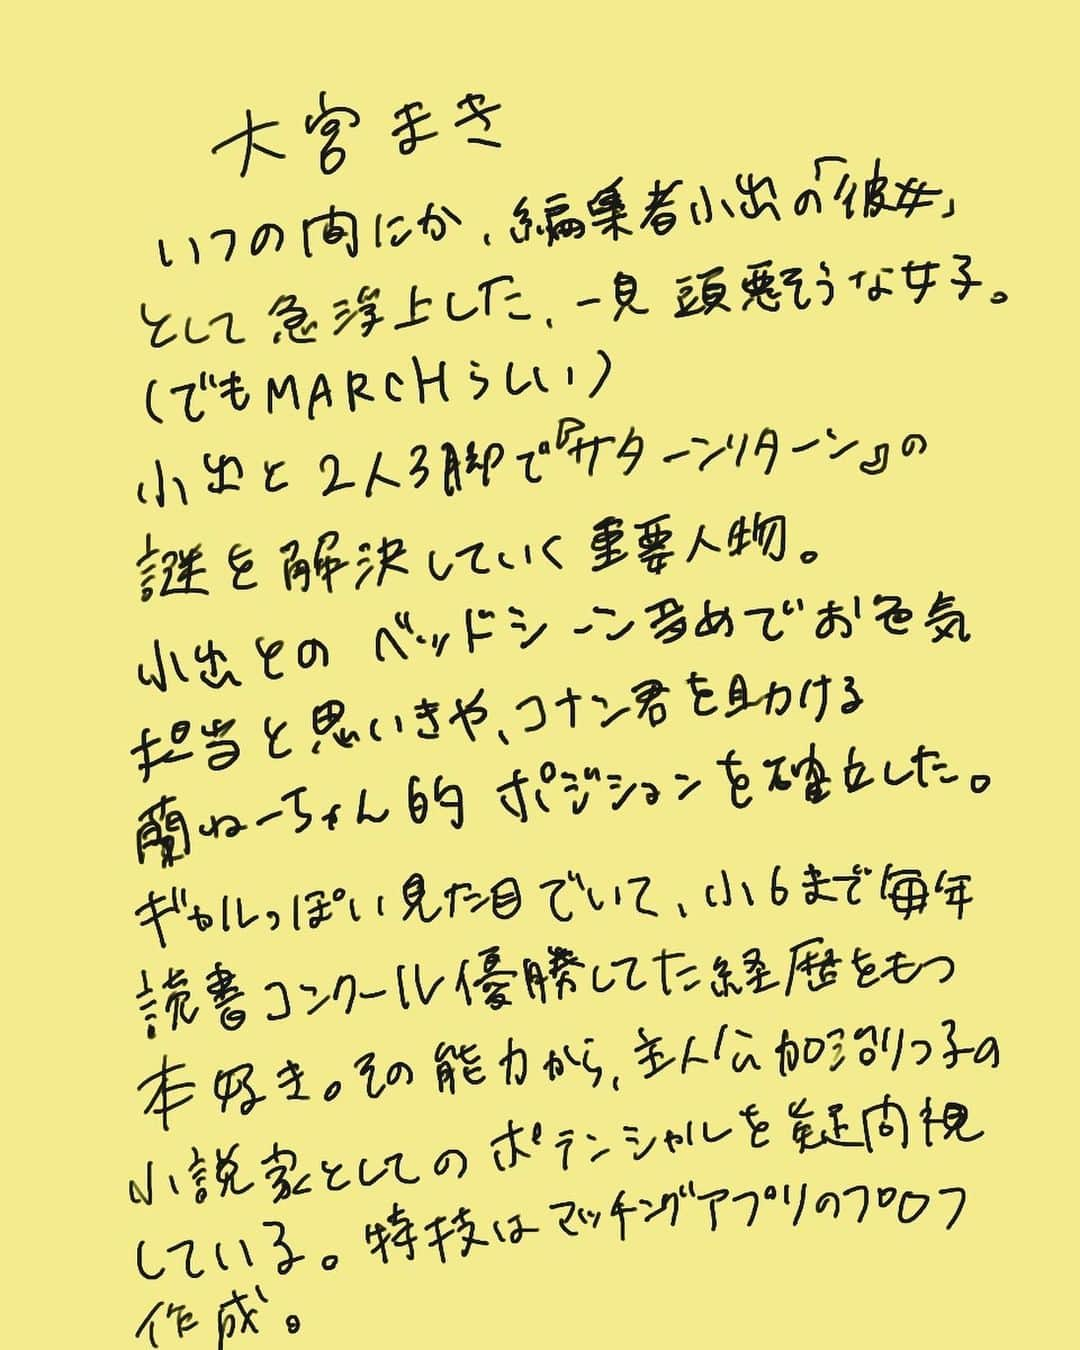 大宮まき
いつの間にか、編集者小出の「彼女」
として急浮上した、一見頭悪そうな女子。
(でもMARCHらしい)
小出と2人3脚で『サターンリターン』の
謎を解決していく重要人物。
小出とのベッドシーン多めでお色気
担当と思いきや、コナン君を助ける
蘭ねーちゃん的ポジションを確立した。
ギャルっぽい見た目でいて、小6まで毎年
読書コンクール優勝してた経歴をもつ
本好き。その能力から、主人公加治りつ子の
小説家としてのポテンシャルを疑問視
している。特技はマッチングアプリのプロフ
作成。